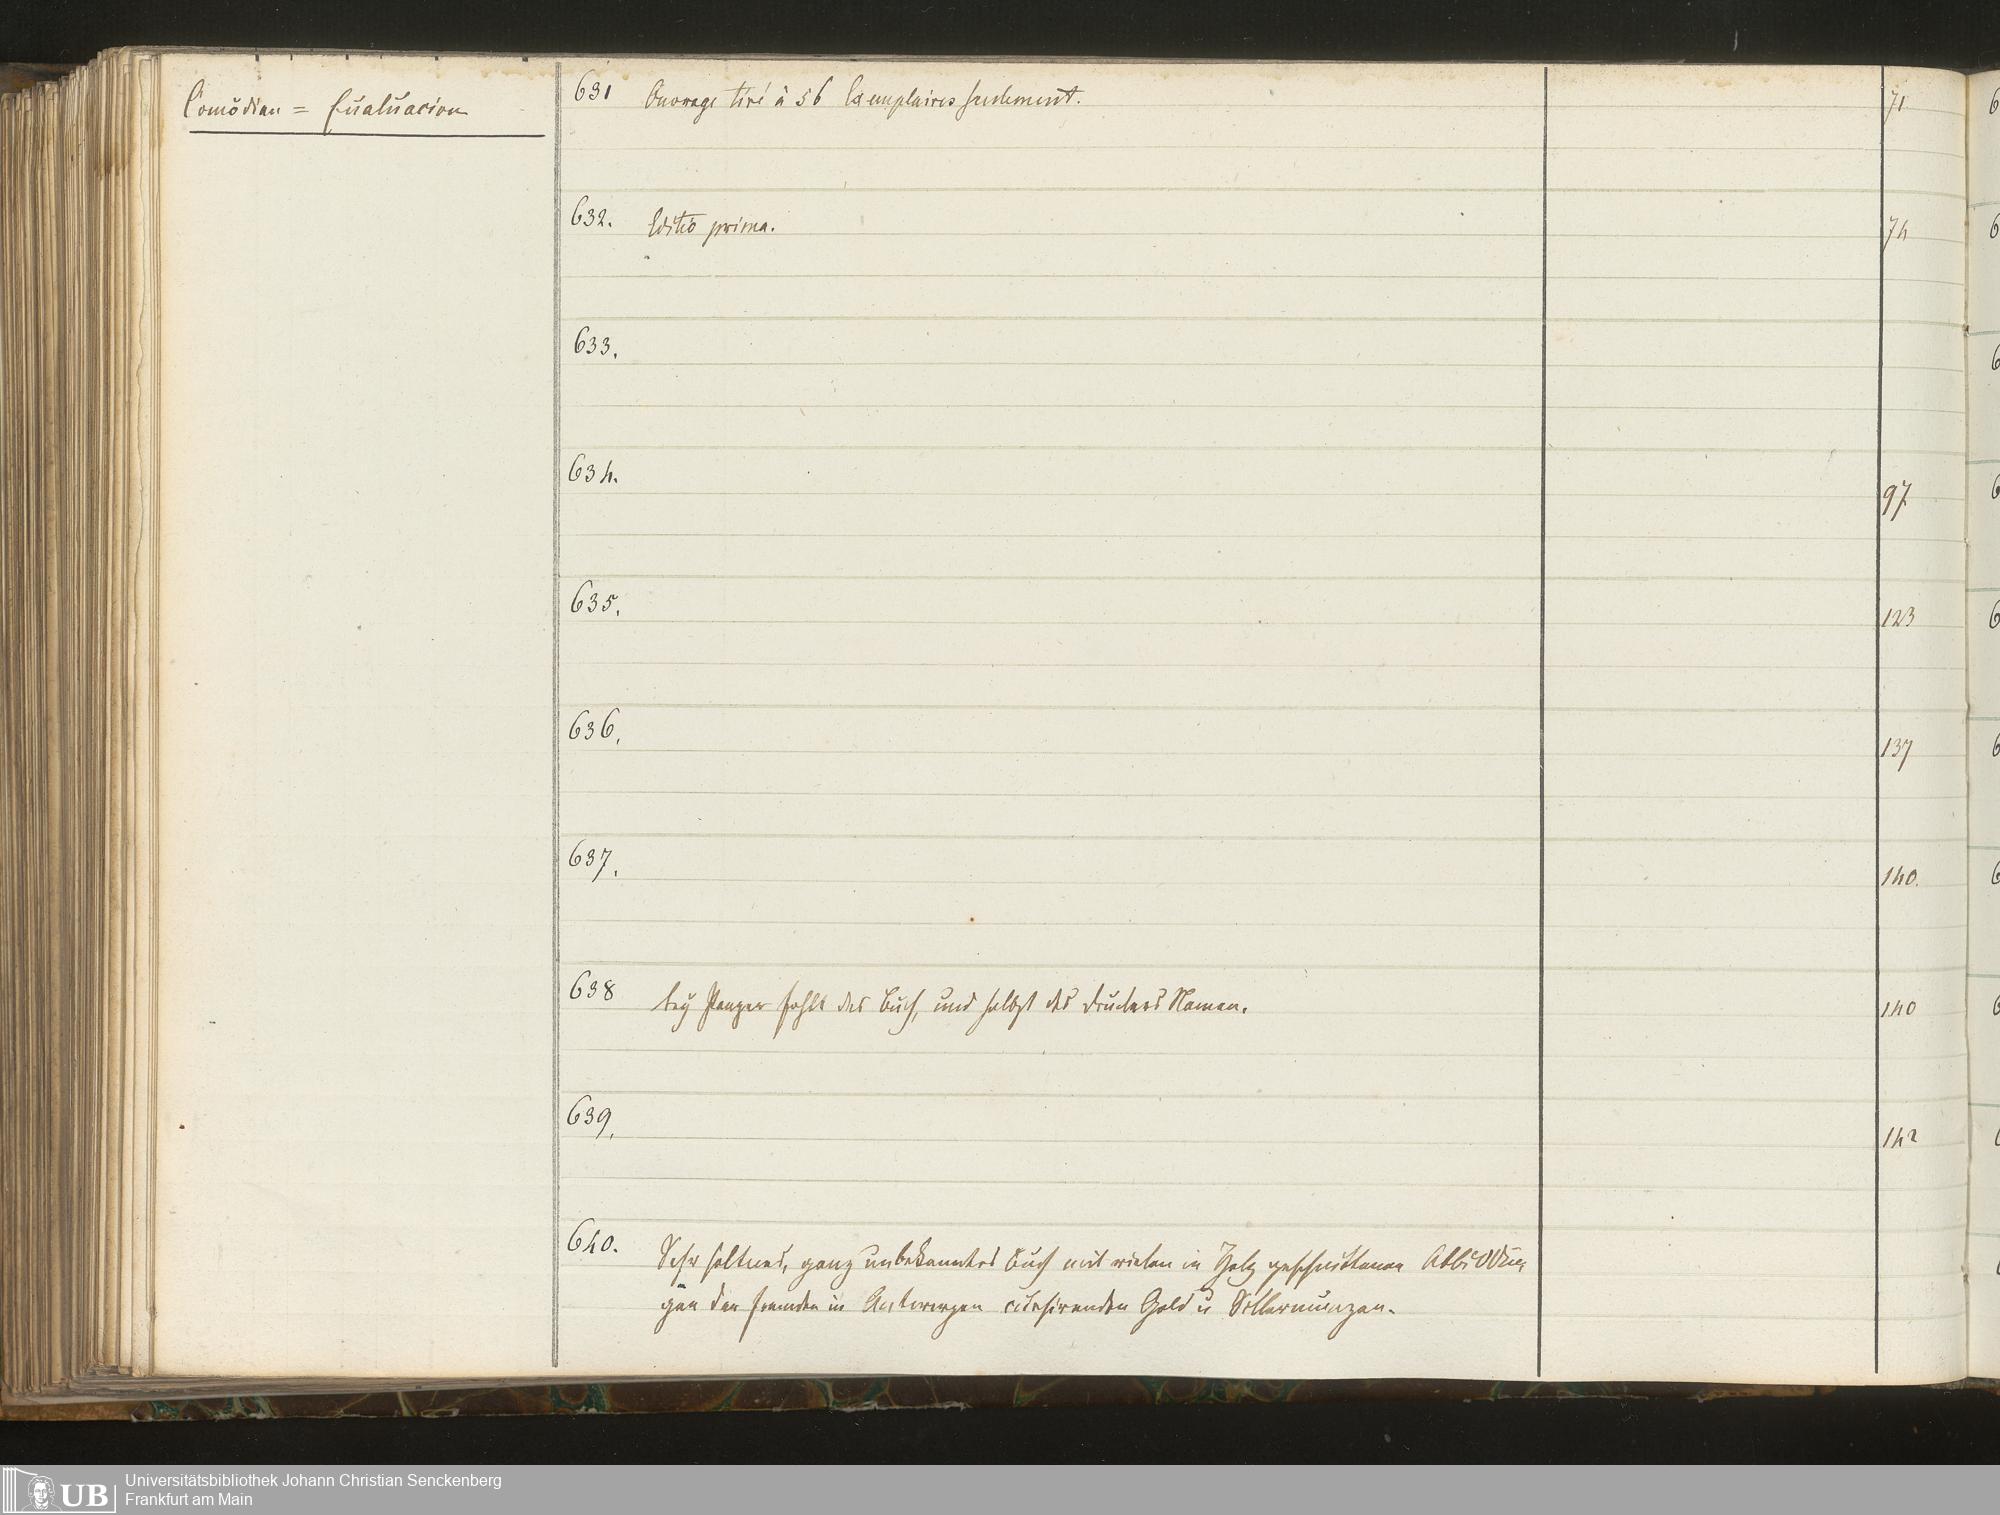 Comödien = Eualuacion
631 Ouvrage tiré à 56 Exemplaires seulement. 71
632. Editio prima. 74
633.
634. 97
635. 123
636. 137
637. 140
638 bey Panzer fehlt das Buch, und selbst des Druckers Namen. 140
639. 142
640. Sehr seltnes, ganz unbekanntes Buch mit vielen in Holz geschnittenen Abbildun
gen der fremden in Antwerpen cursirenden Gold u Silbermünzen.
UB
Universitätsbibliothek Johann Christian Senckenberg
Frankfurt am Main